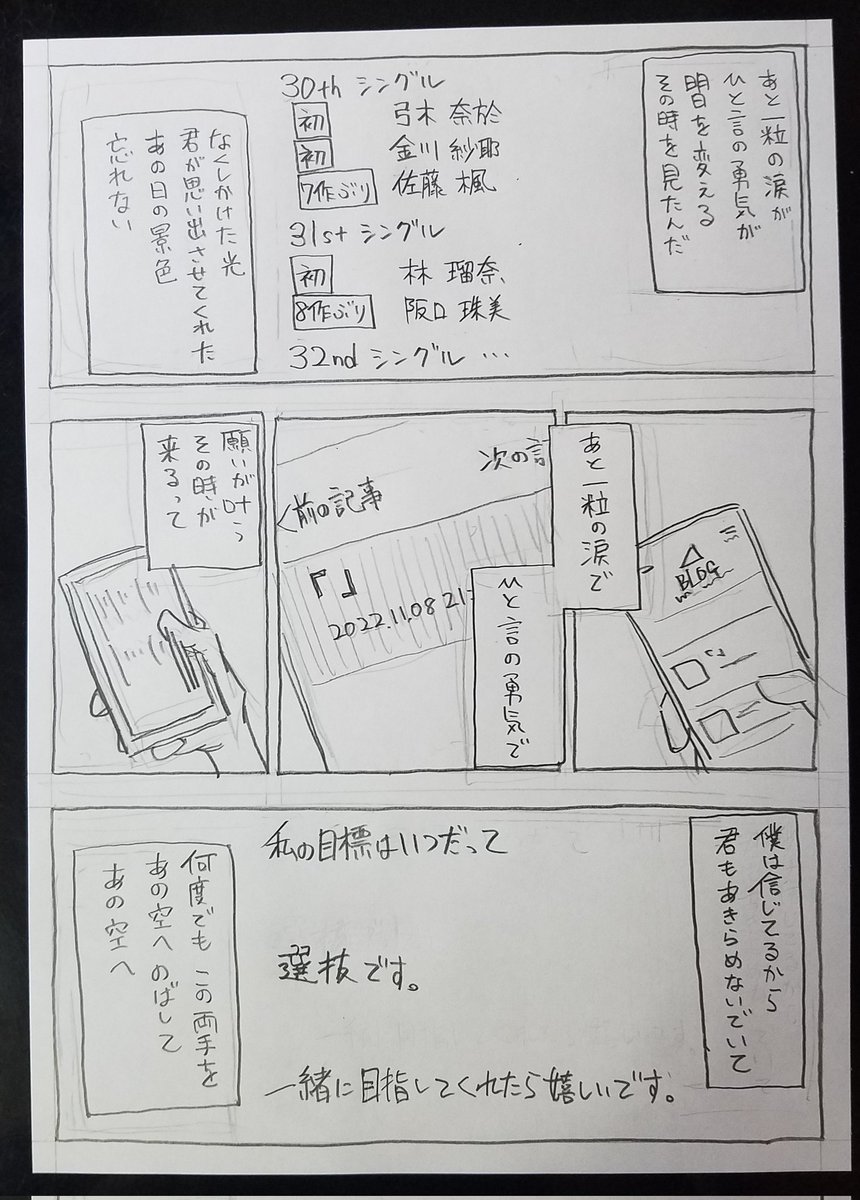 あと一粒の涙が
ひと言の勇気が
明日を変える
その時を見たんだ
30th シングル
初 弓木 奈於
初 金川 紗耶
7作ぶり 佐藤 楓
31st シングル
初 林 瑠奈
8作ぶり 阪口 珠美
32nd シングル …
なくしかけた光
君が思い出させてくれた
あの日の景色
忘れない
あと一粒の涙で
BLOG
ひと言の勇気で
次の記
<前の記事
『』
2022.11.08 21:
願いが叶う
その時が
来るって
僕は信じてるから
君もあきらめないでいて
私の目標はいつだって
選抜です。
一緒に目指してくれたら嬉しいです。
何度でも この両手を
あの空へ のばして
あの空へ